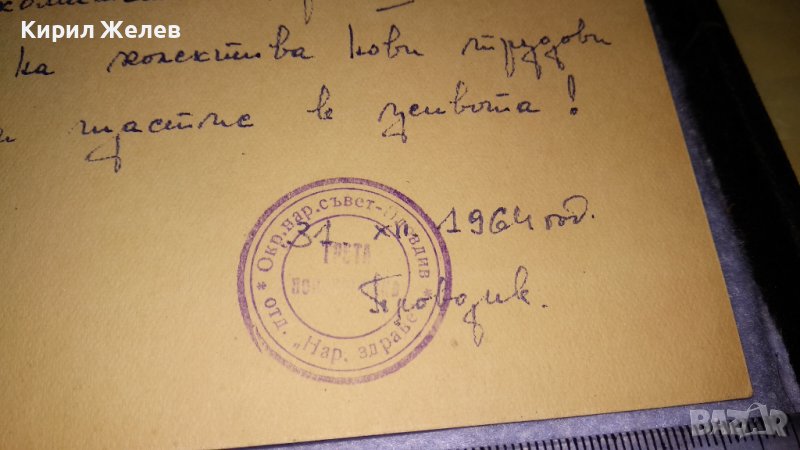 Кирил Желев
на колектива нови трудови
и щастие в живота!
31 XII 1964 год.
Окр. нар. съвет - Пловдив
ТРЕТА
* отд. „Нар. здраве" *
BAZAR